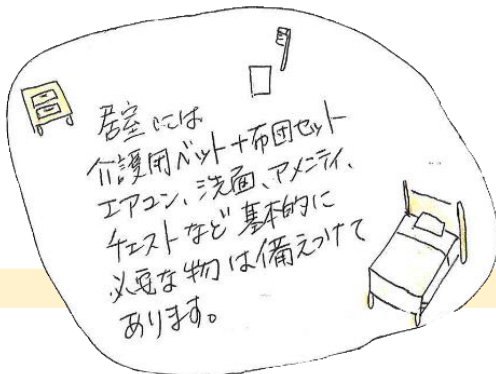 居室には
介護用ベット+布団セット
エアコン、洗面、アメニティ、
チェストなど基本的に
必要な物は備えつけて
あります。